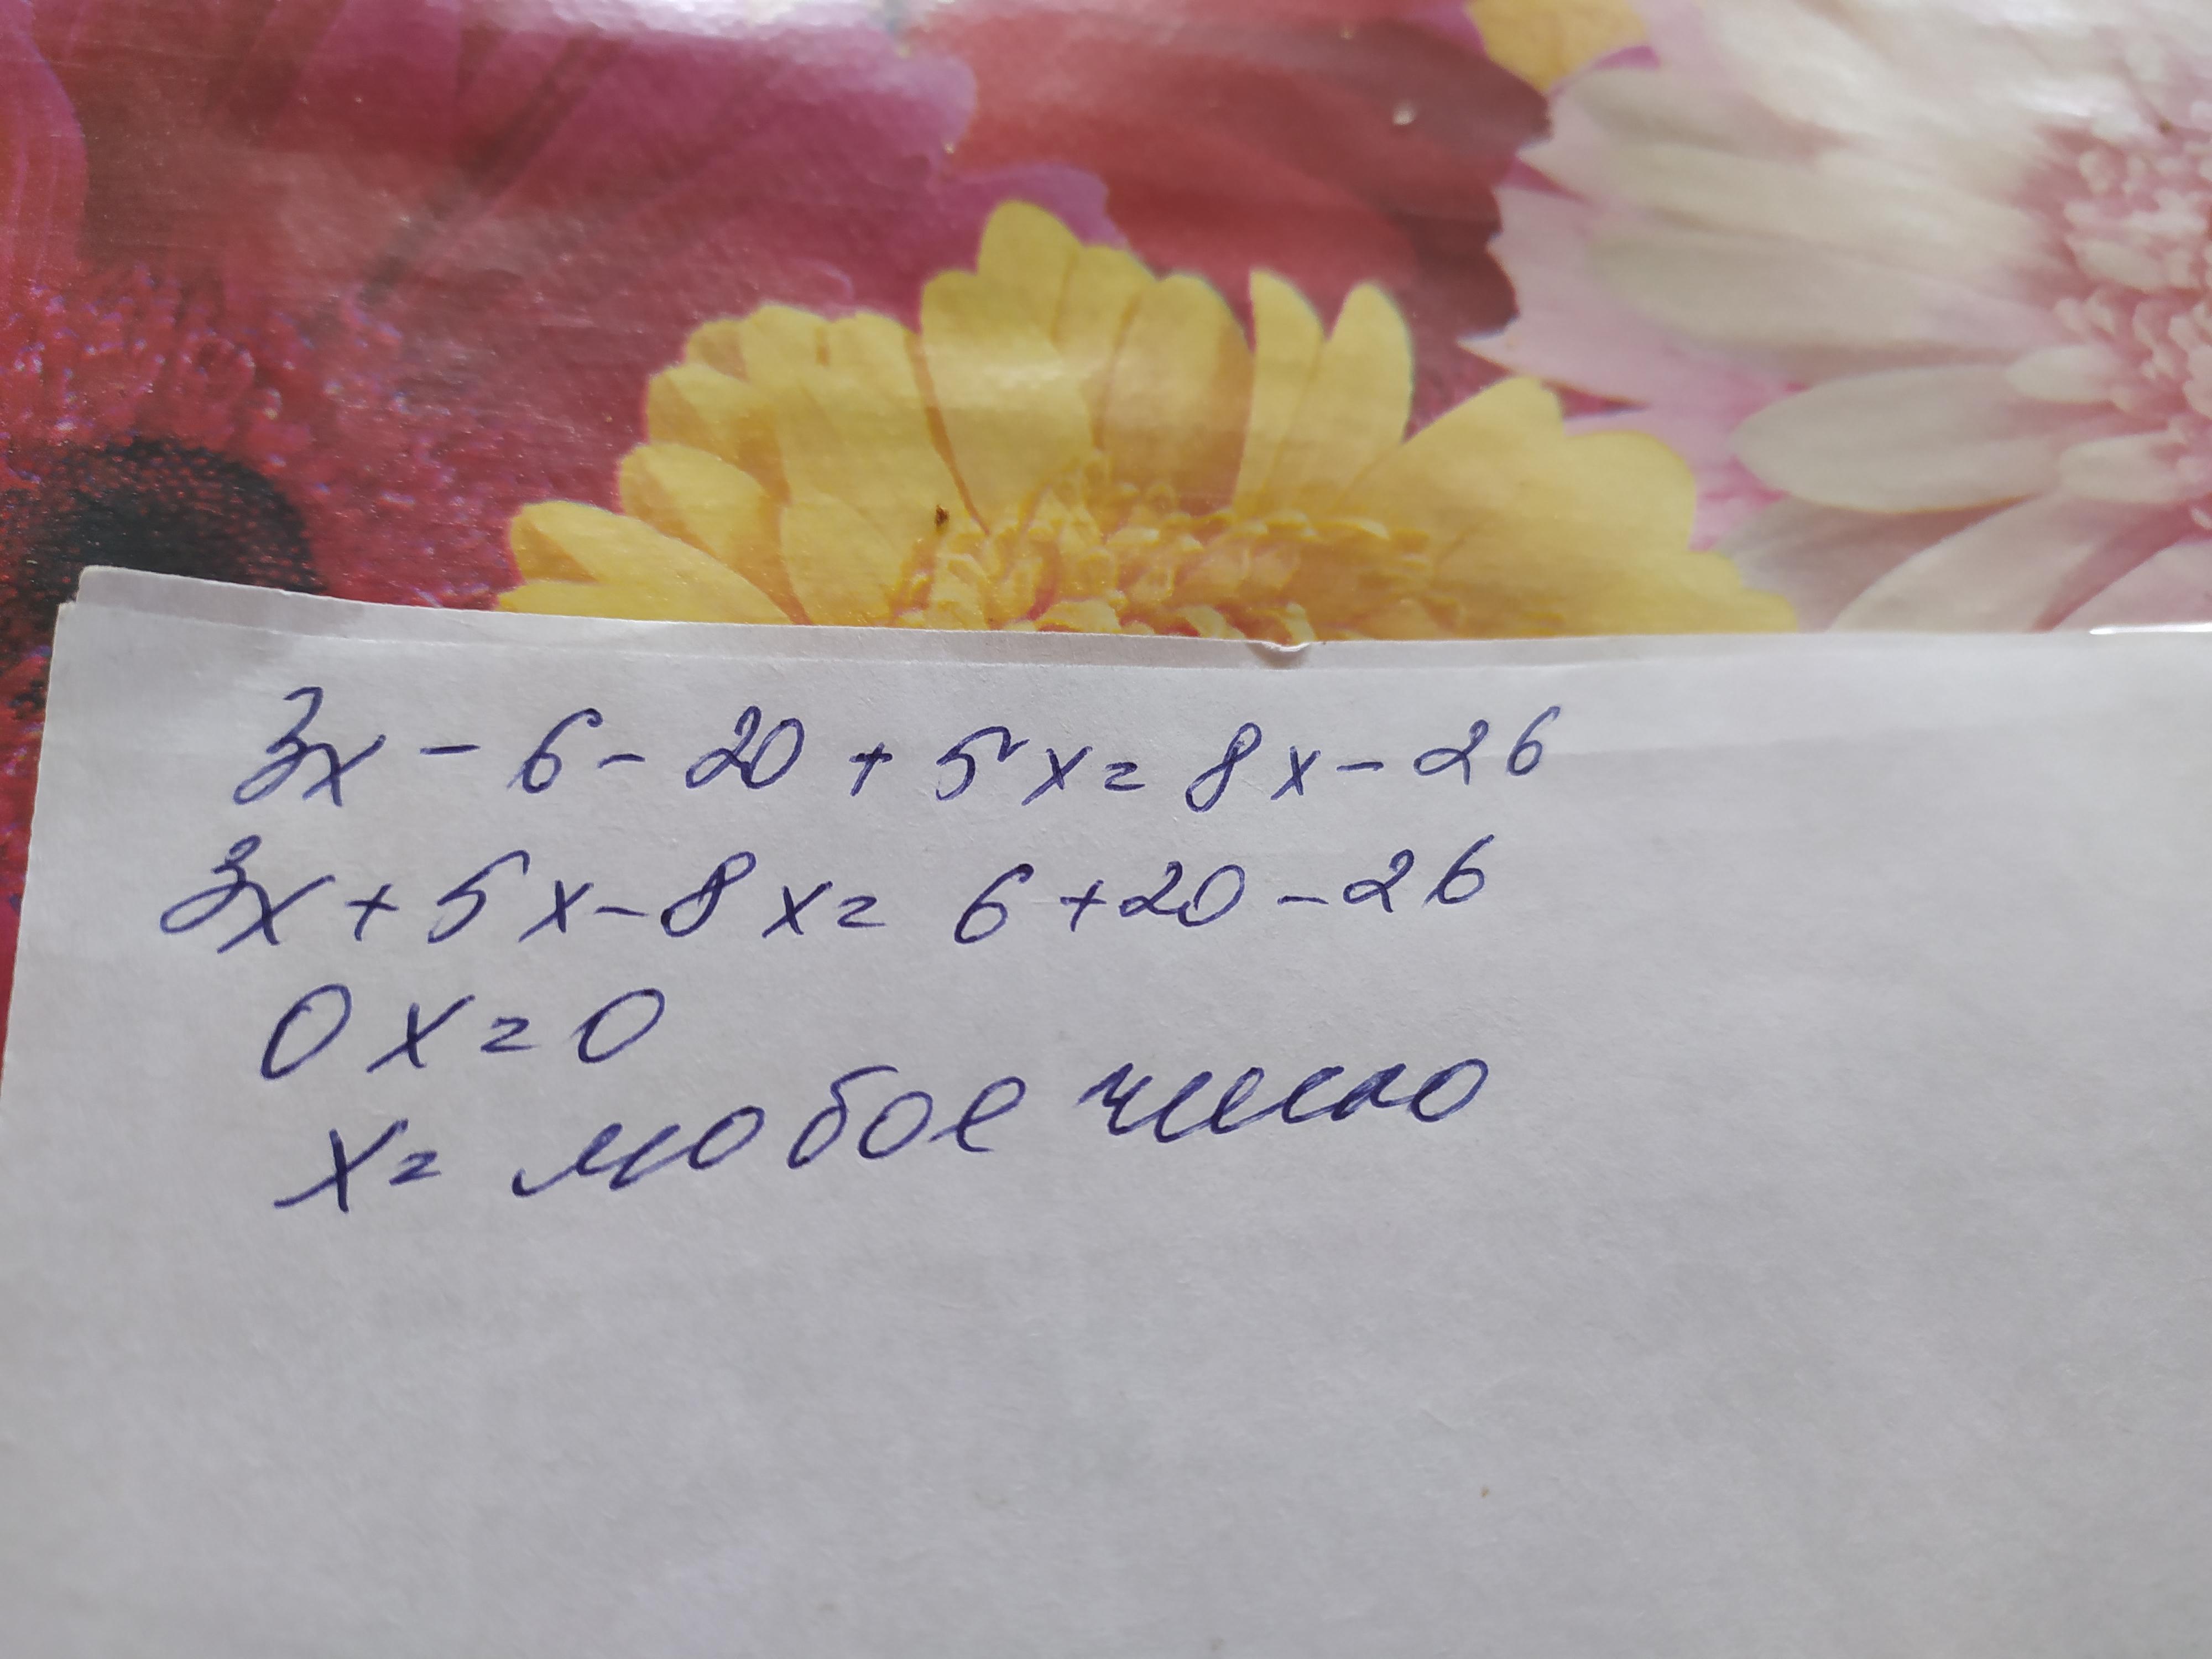 3x - 6 - 20 + 5x = 8x - 26
3x + 5x - 8x = 6 + 20 - 26
0x = 0
x = любое число